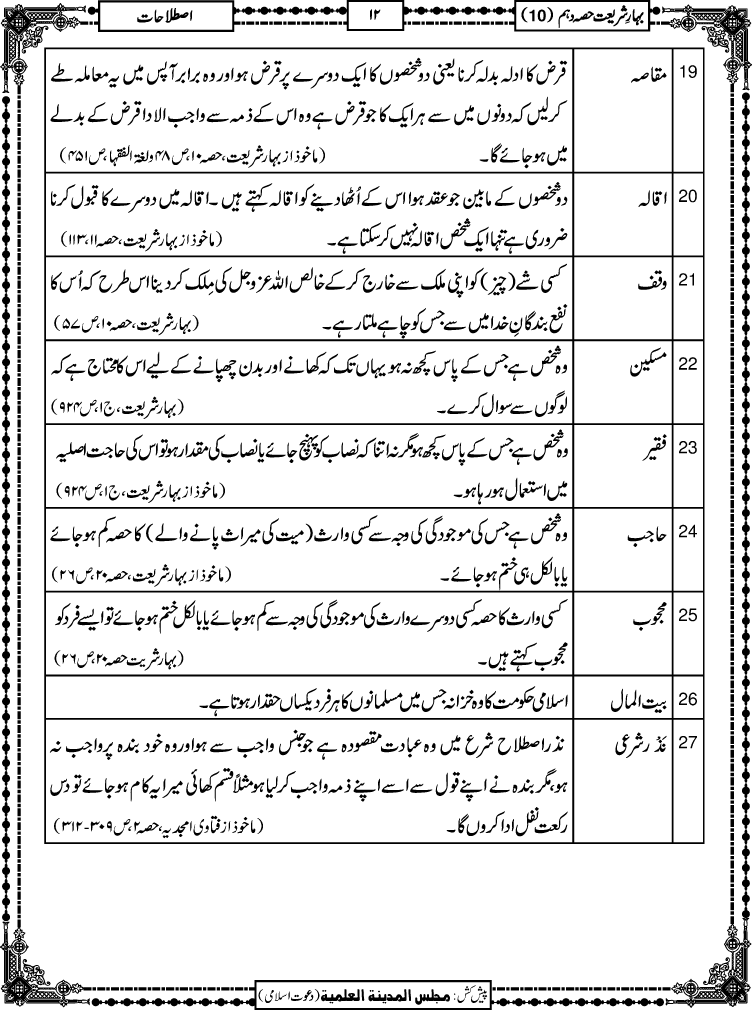 بہارِ شریعت حصہ دہم (10)
۱۲
اصطلاحات
19
مقاصہ
قرض کا ادلہ بدلہ کرنا یعنی دو شخصوں کا ایک دوسرے پر قرض ہو اور وہ برابر آپس میں یہ معاملہ طے
کرلیں کہ دونوں میں سے ہر ایک کا جو قرض ہے وہ اس کے ذمہ سے واجب الادا قرض کے بدلے
میں ہو جائے گا۔ (ماخوذ از بہار شریعت، حصہ ۱۰، ص ۴۸ ولغۃ الفقہا، ص ۴۵۱)
20
اقالہ
دو شخصوں کے مابین جو عقد ہوا اس کے اُٹھا دینے کو اقالہ کہتے ہیں ۔ اقالہ میں دوسرے کا قبول کرنا
ضروری ہے تنہا ایک شخص اقالہ نہیں کرسکتا ہے۔ (ماخوذ از بہار شریعت، حصہ ۱۱، ۱۱۳)
21
وقف
کسی شے (چیز) کو اپنی ملک سے خارج کرکے خالص اللہ عزوجل کی مِلک کردینا اس طرح کہ اُس کا
نفع بندگانِ خدا میں سے جس کو چاہے ملتا رہے۔ (بہار شریعت، حصہ ۱۰، ص ۵۷)
22
مسکین
وہ شخص ہے جس کے پاس کچھ نہ ہو یہاں تک کہ کھانے اور بدن چھپانے کے لیے اس کا محتاج ہے کہ
لوگوں سے سوال کرے۔ (بہار شریعت، ج ۱، ص ۹۲۴)
23
فقیر
وہ شخص ہے جس کے پاس کچھ ہو مگر نہ اتنا کہ نصاب کو پہنچ جائے یا نصاب کی مقدار ہو تو اس کی حاجت اصلیہ
میں استعمال ہو رہا ہو۔ (ماخوذ از بہار شریعت، ج ۱، ص ۹۲۴)
24
حاجب
وہ شخص ہے جس کی موجودگی کی وجہ سے کسی وارث (میت کی میراث پانے والے) کا حصہ کم ہو جائے
یا بالکل ہی ختم ہو جائے۔ (ماخوذ از بہار شریعت، حصہ ۲۰، ص ۲۶)
25
محجوب
کسی وارث کا حصہ کسی دوسرے وارث کی موجودگی کی وجہ سے کم ہو جائے یا بالکل ختم ہو جائے تو ایسے فرد کو
محجوب کہتے ہیں۔ (بہار شریت حصہ ۲۰، ص ۲۶)
26
بیت المال
اسلامی حکومت کا وہ خزانہ جس میں مسلمانوں کا ہر فرد یکساں حقدار ہوتا ہے۔
27
نَذْرِ شرعی
نذر اصطلاح شرع میں وہ عبادت مقصودہ ہے جو جنس واجب سے ہو اور وہ خود بندہ پر واجب نہ
ہو، مگر بندہ نے اپنے قول سے اسے اپنے ذمہ واجب کرلیا ہو مثلاً قسم کھائی میرا یہ کام ہو جائے تو دس
رکعت نفل ادا کروں گا۔ (ماخوذ از فتاوی امجدیہ، حصہ ۲، ص ۳۰۹-۳۱۲)
پیش کش: مجلس المدینۃ العلمیۃ (دعوت اسلامی)